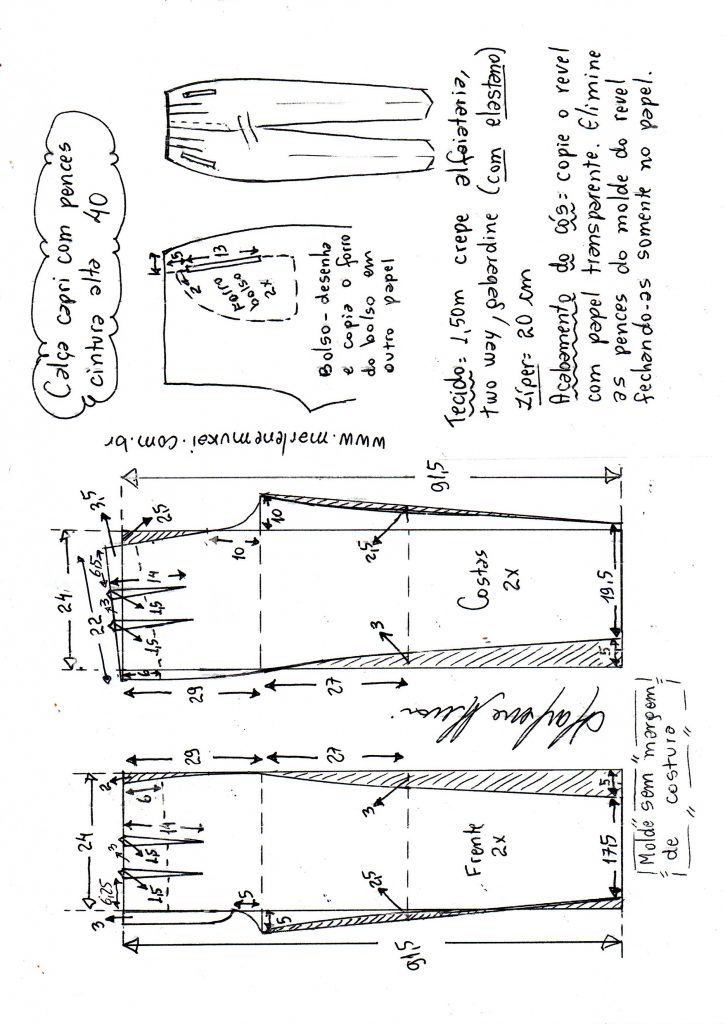 Calça capri com pences
cintura alta 40
1,5
13
2
Forro
bolso
2x
Bolso - desenha
e copia o forro
do bolso em
outro papel
Tecido = 1,50m crepe alfaiataria,
two way, gabardine (com elastano)
Zíper = 20 cm
Acabamento do cós = copie o revel
com papel transparente. Elimine
as pences do molde do revel
fechando-as somente no papel.
www.marlenemukai.com.br
91,5
24
22
3,5
2,5
6,5
3
14
1,5
1,5
6
10
10
29
27
2,5
3
Costas
2x
19,5
5
29
27
24
2
6
3
14
1,5
1,5
6,25
3
5
5
2,5
3
Frente
2x
17,5
5
91,5
Molde sem margem
de costura